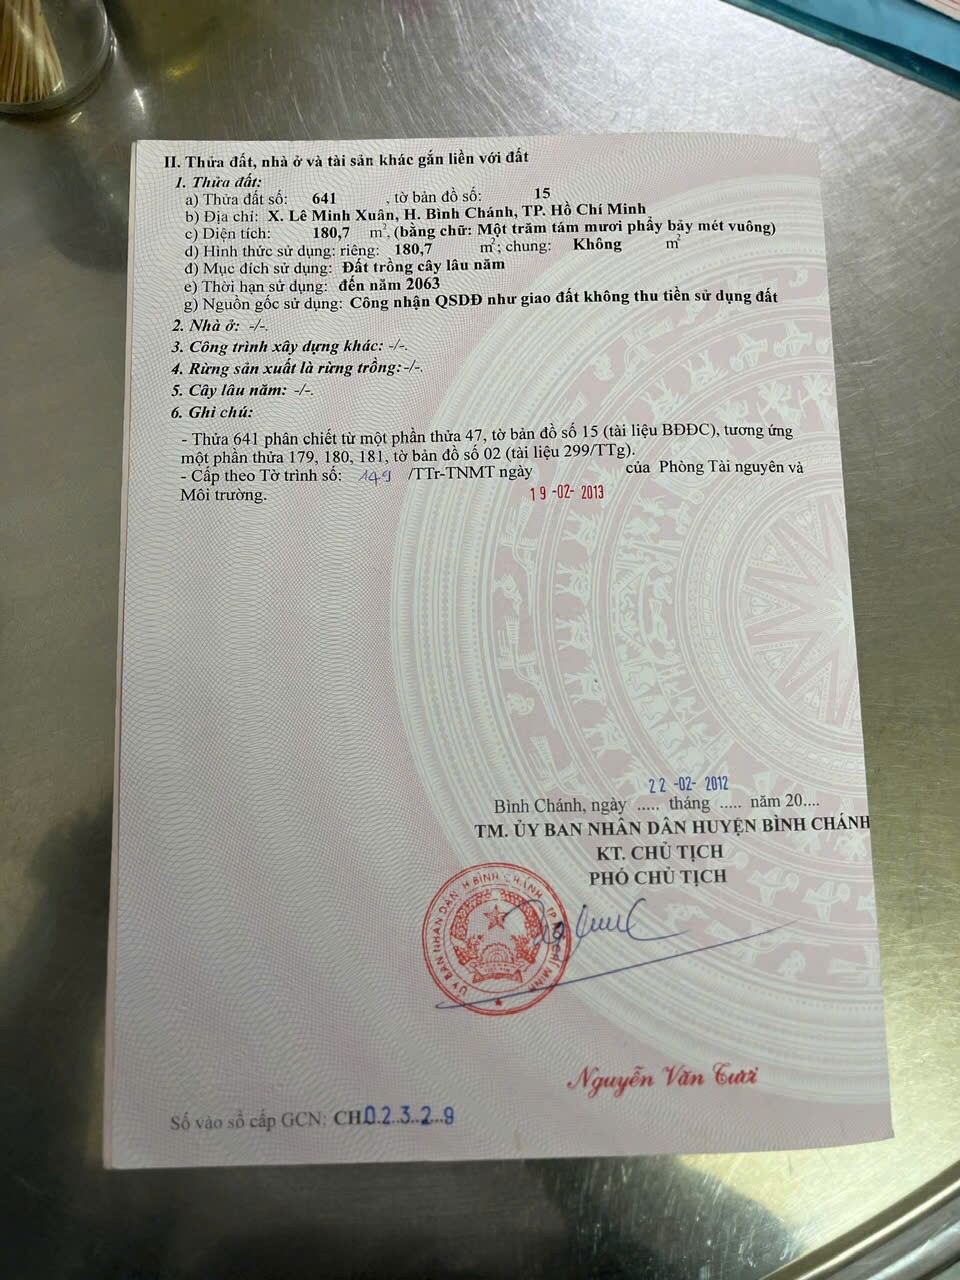 II. Thửa đất, nhà ở và tài sản khác gắn liền với đất
1. Thửa đất:
a) Thửa đất số: 641 , tờ bản đồ số: 15
b) Địa chỉ: X. Lê Minh Xuân, H. Bình Chánh, TP. Hồ Chí Minh
c) Diện tích: 180,7 m², (bằng chữ: Một trăm tám mươi phẩy bảy mét vuông)
d) Hình thức sử dụng: riêng: 180,7 m²; chung: Không m²
đ) Mục đích sử dụng: Đất trồng cây lâu năm
e) Thời hạn sử dụng: đến năm 2063
g) Nguồn gốc sử dụng: Công nhận QSDĐ như giao đất không thu tiền sử dụng đất
2. Nhà ở: -/-.
3. Công trình xây dựng khác: -/-.
4. Rừng sản xuất là rừng trồng:-/-.
5. Cây lâu năm: -/-.
6. Ghi chú:
- Thửa 641 phân chiết từ một phần thửa 47, tờ bản đồ số 15 (tài liệu BĐĐC), tương ứng
một phần thửa 179, 180, 181, tờ bản đồ số 02 (tài liệu 299/TTg).
- Cấp theo Tờ trình số: 149 /TTr-TNMT ngày 19-02-2013 của Phòng Tài nguyên và
Môi trường.
22-02-2012
Bình Chánh, ngày ..... tháng ..... năm 20....
TM. ỦY BAN NHÂN DÂN HUYỆN BÌNH CHÁNH
KT. CHỦ TỊCH
PHÓ CHỦ TỊCH
ỦY BAN NHÂN DÂN H.BÌNH CHÁNH TP.HỒ CHÍ MINH
Nguyễn Văn Tươi
Số vào sổ cấp GCN: CH.0.2.3.2.9